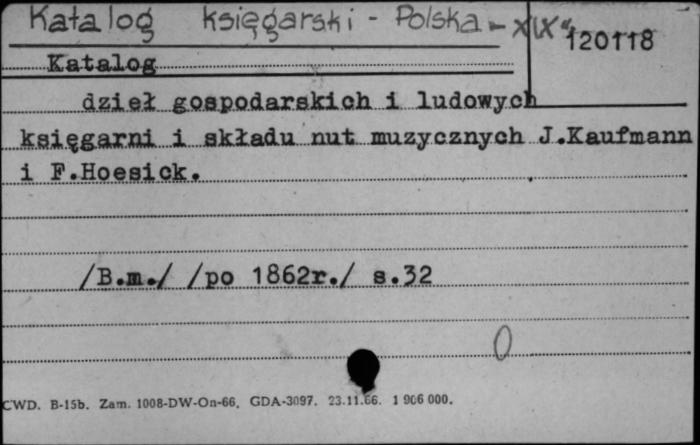 Katalog księgarski - Polska - XIX w.
120118
Katalog
dzieł gospodarskich i ludowych
księgarni i składu nut muzycznych J.Kaufmann
i F.Hoesick.
/B.m./ /po 1862r./ s.32
0
CWD. B-15b. Zam. 1008-DW-On-66. GDA-3097. 23.11.66. 1 906 000.